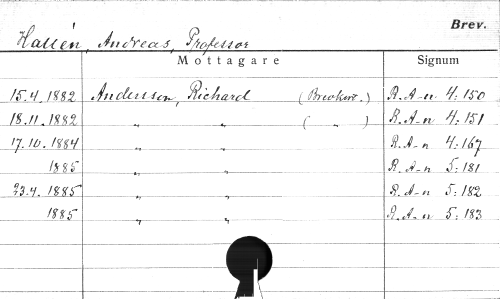 Brev.
Hallén, Andreas, Professor
Mottagare Signum
15.4.1882 Andersson, Richard (Brevkort.) R.A-n 4:150
18.11.1882 " " ( " ) R.A-n 4:151
17.10.1884 " " R.A-n 4:167
1885 " " R.A-n 5:181
23.4.1885 " " R.A-n 5:182
1885 " " R.A-n 5:183